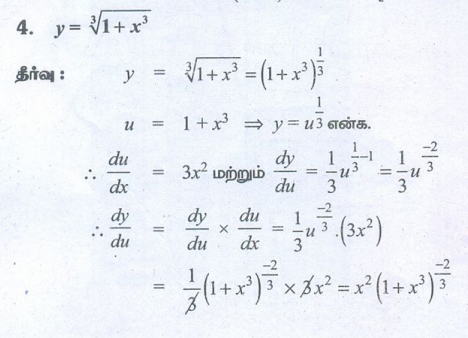 4. y = ∛(1 + x³)
தீர்வு : y = ∛(1 + x³) = (1 + x³)^(1/3)
u = 1 + x³ ⇒ y = u^(1/3) என்க.
∴ du/dx = 3x² மற்றும் dy/du = 1/3 u^(1/3 − 1) = 1/3 u^(−2/3)
∴ dy/du = dy/du × du/dx = 1/3 u^(−2/3) . (3x²)
= 1/3 (1 + x³)^(−2/3) × 3x² = x² (1 + x³)^(−2/3)